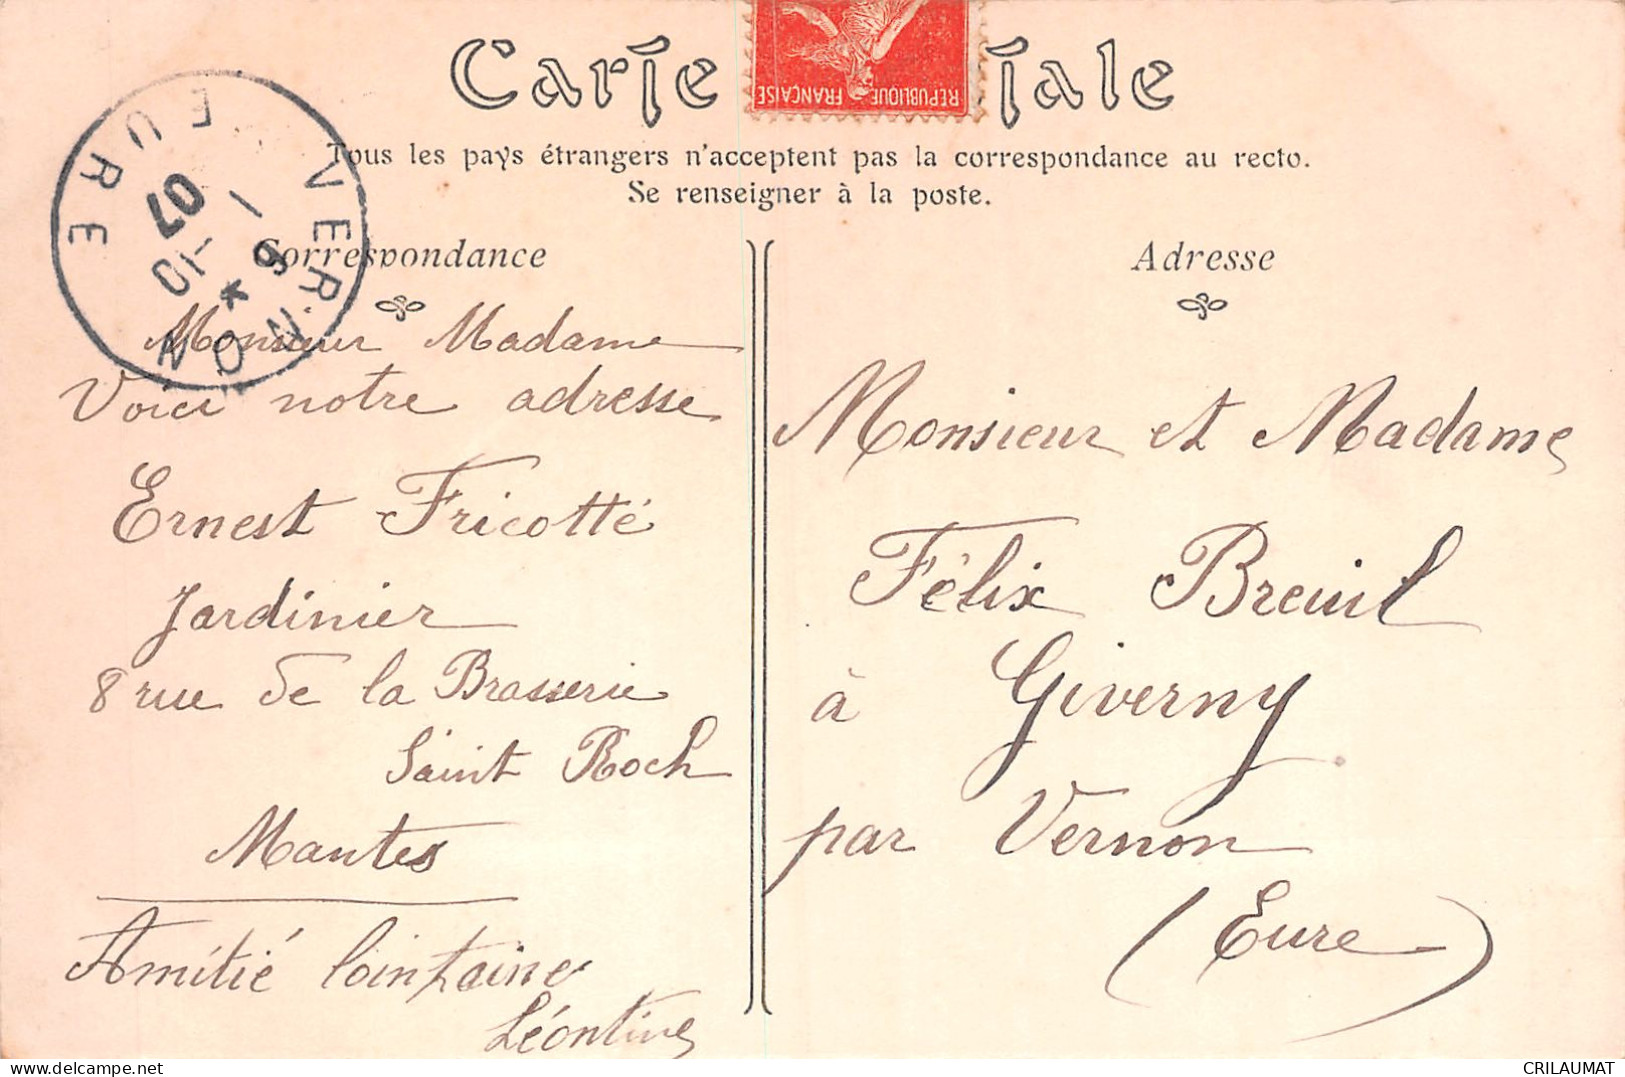 Carte tale
REPUBLIQUE FRANÇAISE
Tous les pays étrangers n'acceptent pas la correspondance au recto.
Se renseigner à la poste.
VERNON
EURE
6 - 10
07
Correspondance
Monsieur Madame
Voici notre adresse
Ernest Fricotté
Jardinier
8 rue de la Brasserie
Saint Roch
Mantes
Amitié lointaine
Léontine
Adresse
Monsieur et Madame
Félix Breuil
à Giverny
par Vernon
(Eure)
CRILAUMAT